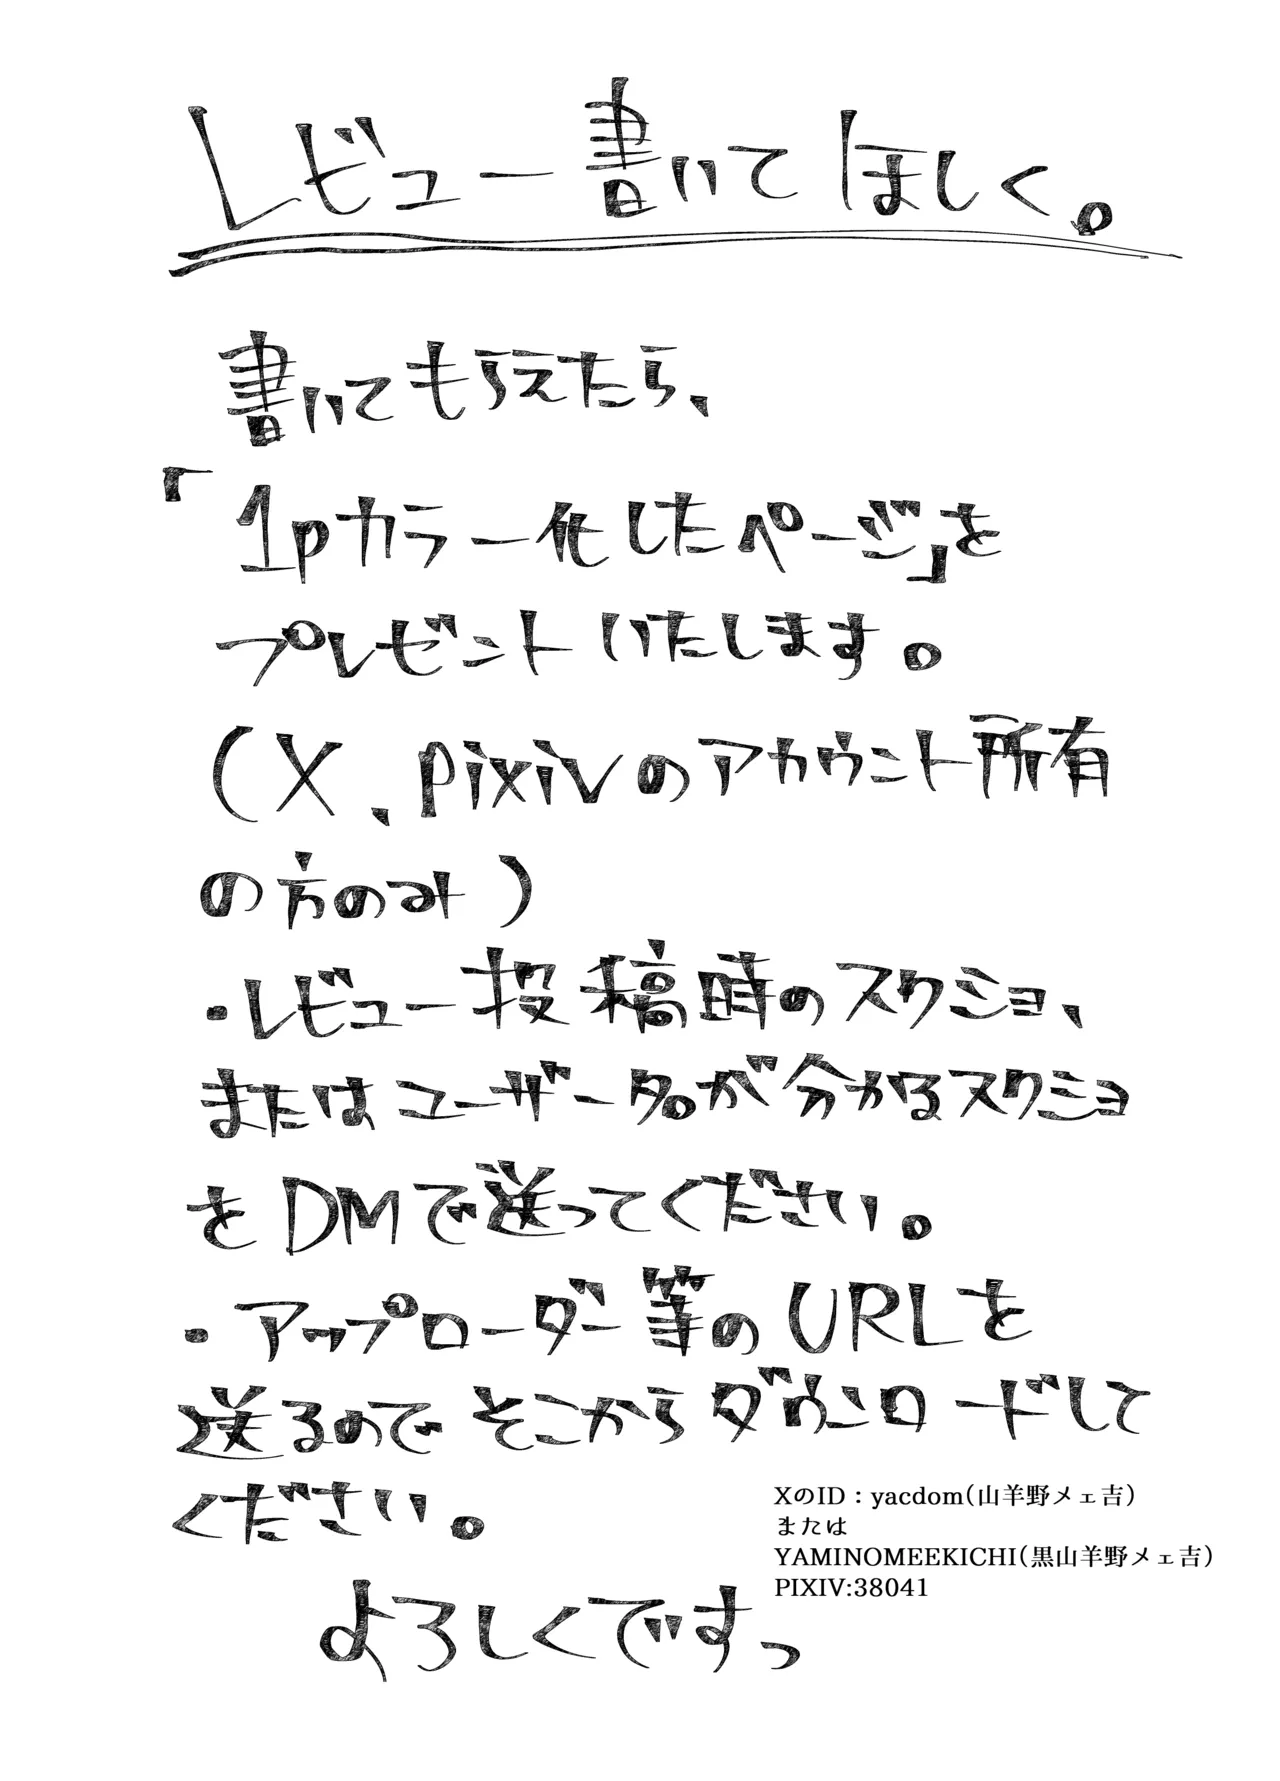 レビュー書いてほしく。
書いてもらえたら、
「1pカラー化したページ」を
プレゼントいたします。
(X、pixivのアカウント所有
の方のみ)
・レビュー投稿時のスクショ、
またはユーザー名が分かるスクショ
をDMで送ってください。
・アップローダー等のURLを
送るのでそこからダウンロードして
ください。
XのID:yacdom(山羊野メェ吉)
または
YAMINOMEEKICHI(黒山羊野メェ吉)
PIXIV:38041
よろしくですっ